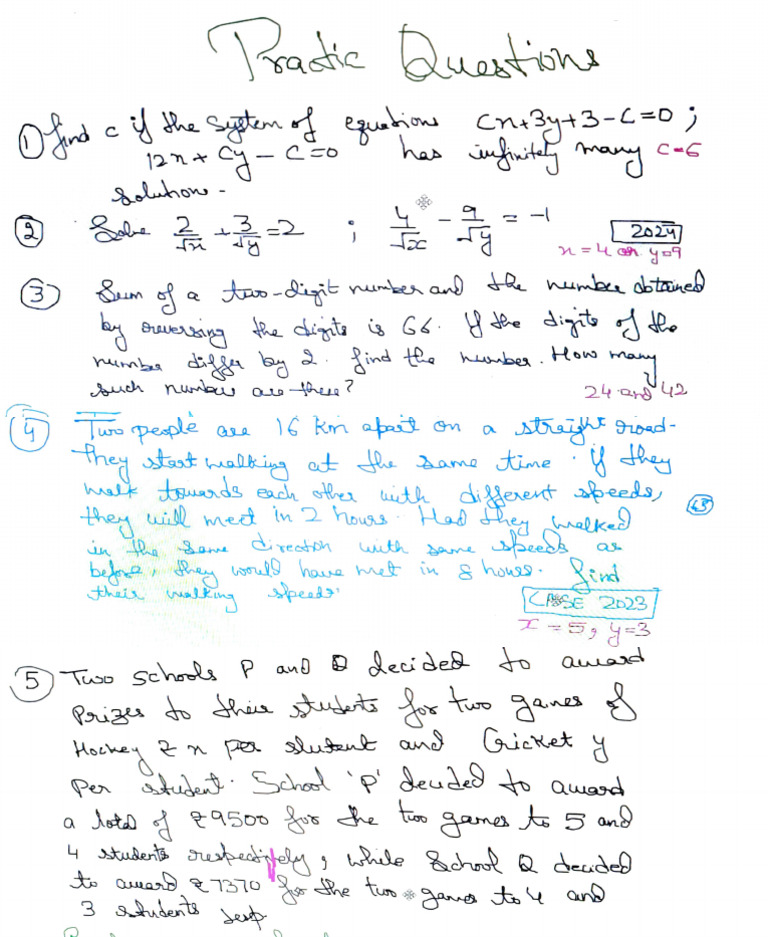 Practic Questions
① find c if the system of equations cx+3y+3-c=0 ;
12x + cy - c = 0 has infinitely many c=6
solutions -
② Solve 2/√x + 3/√y = 2 ; 4/√x - 9/√y = -1 2024
x=4 or y=9
③ Sum of a two-digit number and the number obtained
by reversing the digits is 66. If the digits of the
number differ by 2. find the number. How many
such numbers are there? 24 and 42
④ Two people are 16 km apart on a straight road-
They start walking at the same time. if they
walk towards each other with different speeds,
they will meet in 2 hours. Had they walked
in the same direction with same speeds as
before, they would have met in 8 hours. find
their walking speeds.
CBSE 2023
x = 5, y=3
⑤ Two schools P and Q decided to award
Prizes to their students for two games of
Hockey ₹ x per student and Cricket y
Per student. School 'P' decided to award
a total of ₹9500 for the two games to 5 and
4 students respectively, while School Q decided
to award ₹7370 for the two games to 4 and
3 students resp.